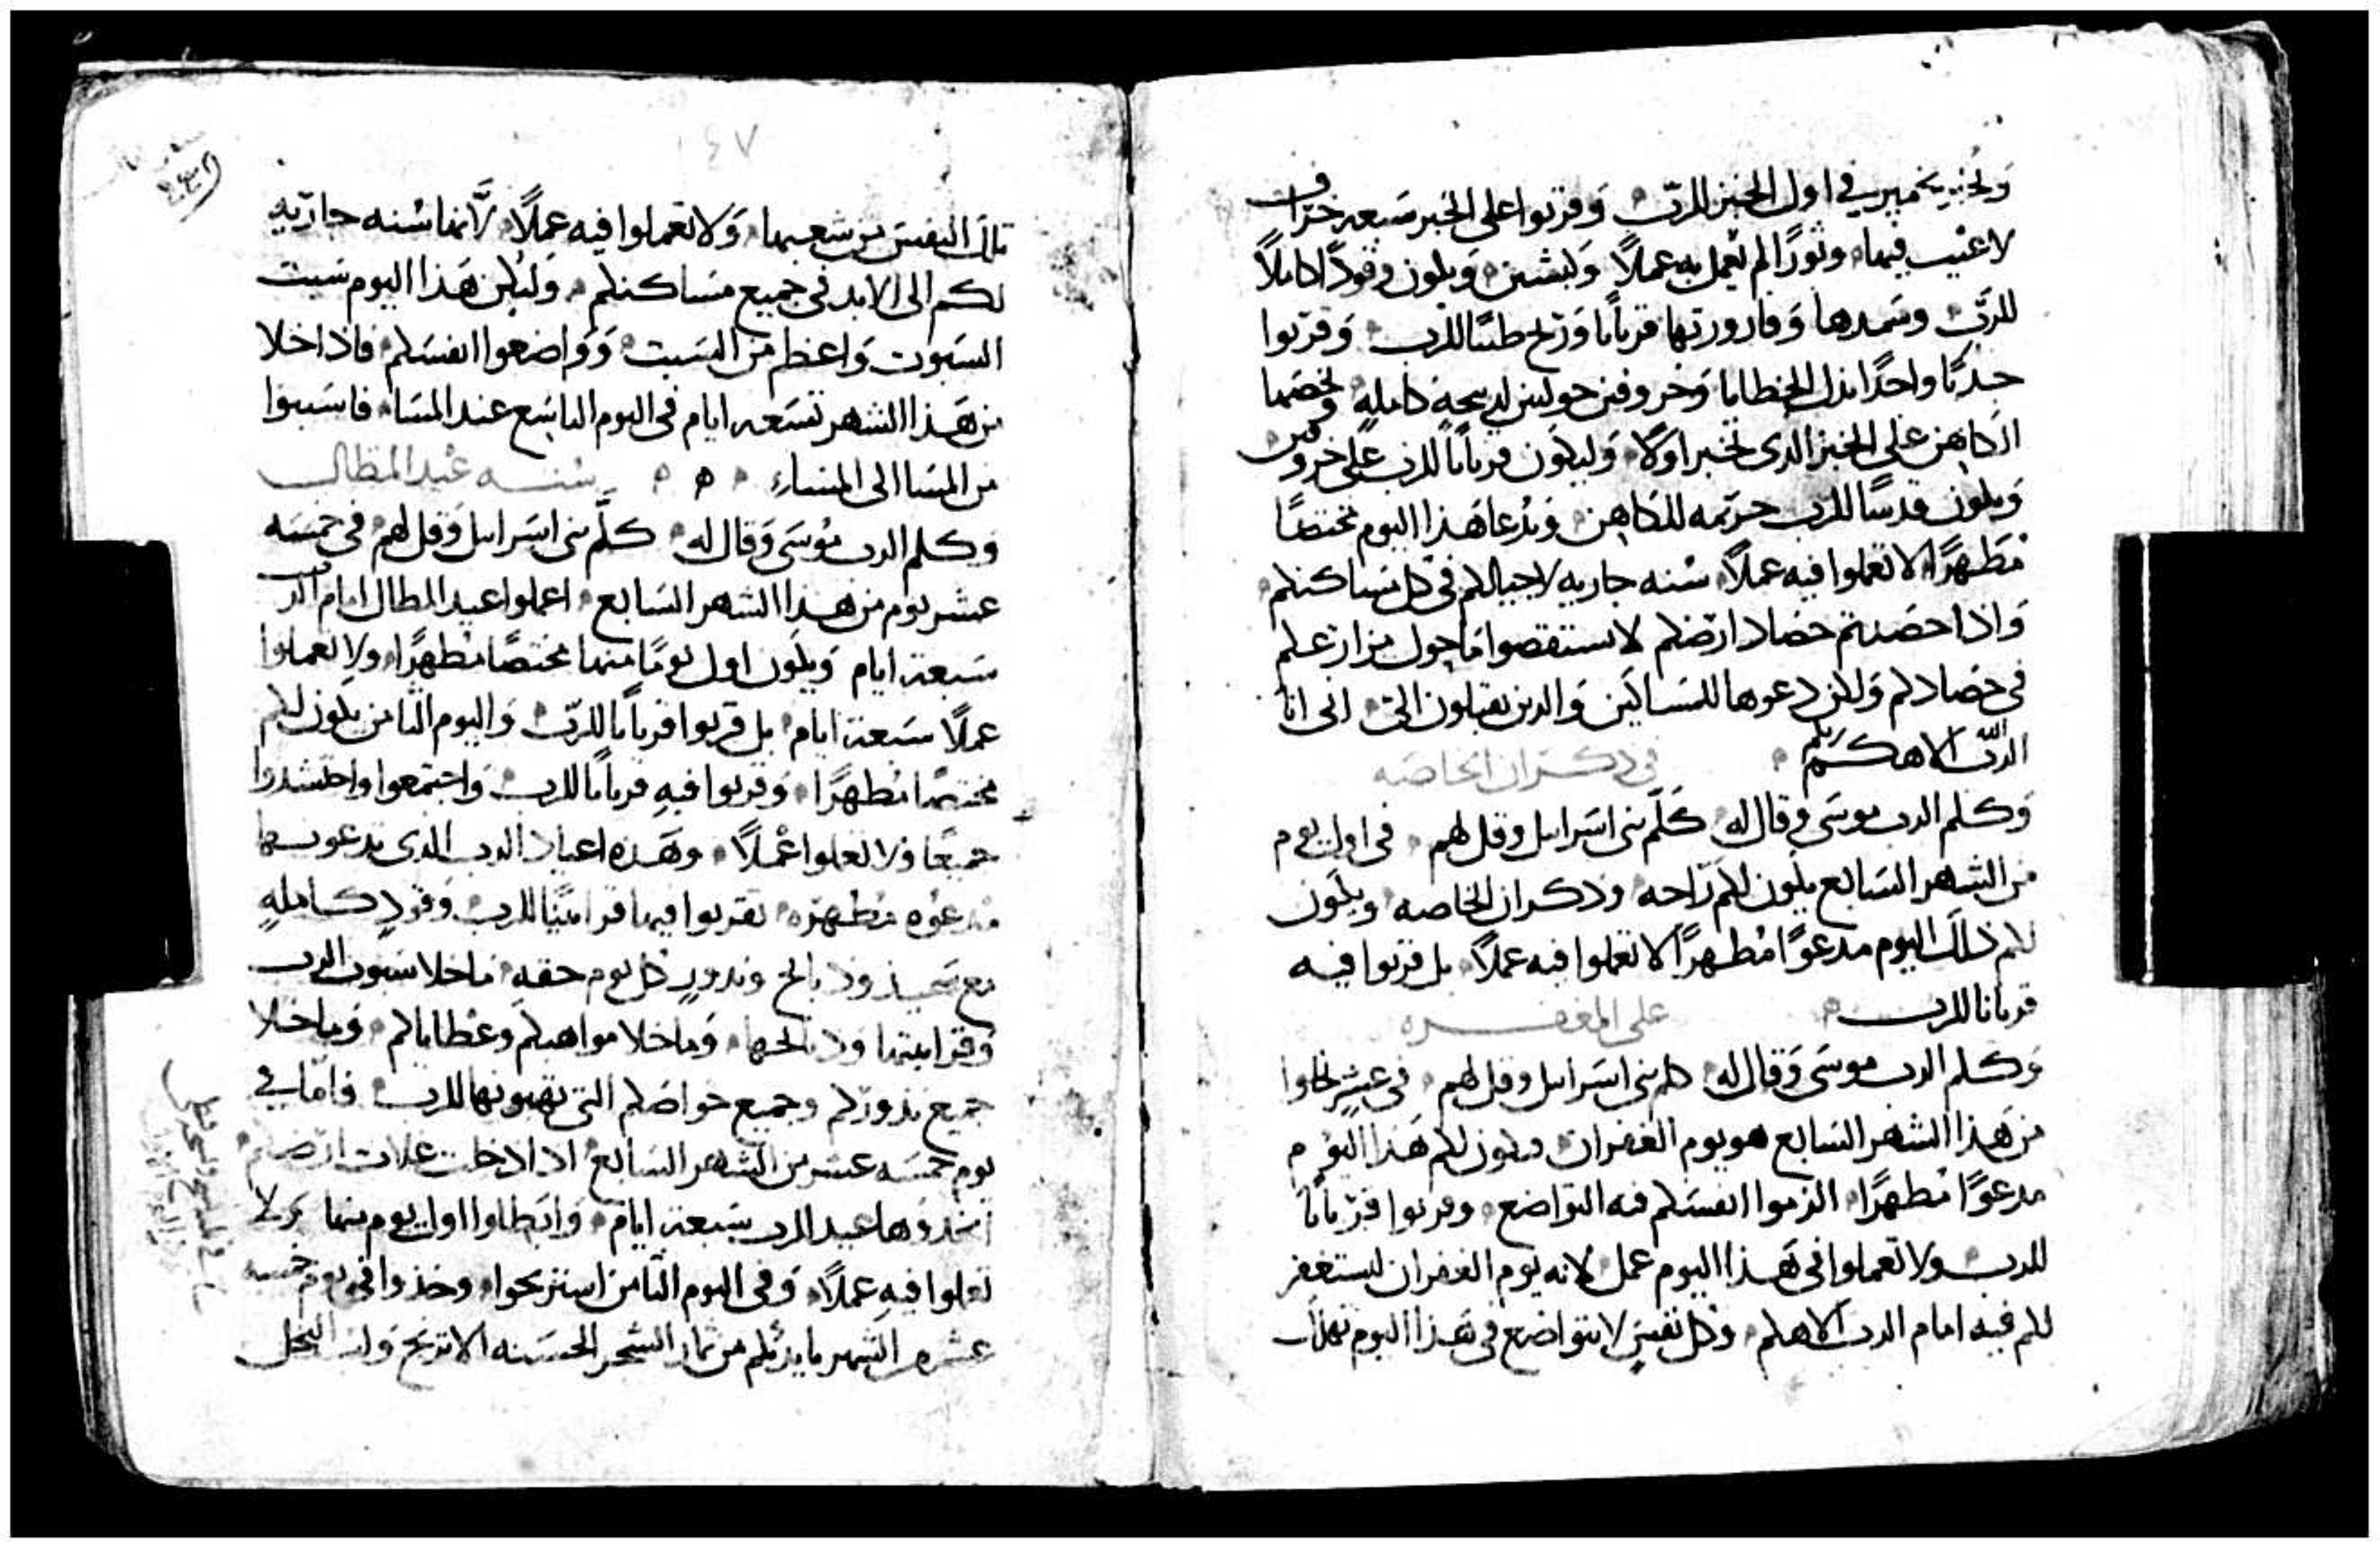 ولخبز بخمير في اول الخبز للرب وقربوا على الخبز سبعه خراف
لا عيب فيها وثورًا لم يعمل به عملًا وكبشين ويكون وقودًا كاملًا
للرب وسمدها وقارورتها قربانًا وريح طيبًا للرب وقربوا
جديًا واحدًا بدل الخطايا وخروفين حوليين لذبيحه كامله ويخصها
الكاهن على الخبز الذي يخبز اولًا وليكون قربانًا للرب على خروفين
ويكون قدسًا للرب حريمه للكاهن ويدعا هذا اليوم مختصًا
مطهرًا لا تعملوا فيه عملًا سنه جاريه لاجيالكم في كل مساكنكم
واذا حصدتم حصاد ارضكم لا تستقصوا ما حول مزارعكم
في حصادكم ولكن دعوها للمساكين والذين يقبلون الي اني انا
الرب الاهكم
في ذكران الخاصه
وكلم الرب موسى وقال له كلم بني اسرايل وقل لهم في اول يوم
من الشهر السابع يكون لكم راحه وذكران الخاصه ويكون
لكم ذلك اليوم مدعوًا مطهرًا لا تعملوا فيه عملًا بل قربوا فيه
قربانا للرب
على المغفره
وكلم الرب موسى وقال له كلم بني اسرايل وقل لهم في عشر تخلوا
من هذا الشهر السابع هو يوم الغفران ويكون لكم هذا اليوم
مدعوًا مطهرًا الزموا انفسكم فيه التواضع وقربوا قربانًا
للرب ولا تعملوا في هذا اليوم عمل لانه يوم الغفران ليستغفر
لكم فيه امام الرب الاهكم وكل نفس لا يتواضع في هذا اليوم تهلك
١٤٧
تلك النفس من شعبها ولا تعملوا فيه عملًا لانها سنه جاريه
لكم الى الابد في جميع مساكنكم وليكن هذا اليوم سبت
السبوت واعظم من السبت وواضعوا انفسكم فاذا خلا
من هذا الشهر تسعه ايام في اليوم التاسع عند المسا فاسبتوا
من المسا الى المساء سنه عيد المظال
وكلم الرب موسى وقال له كلم بني اسرايل وقل لهم في خمسه
عشر يوم من هذا الشهر السابع اعملوا عيد المظال امام الرب
سبعة ايام ويكون اول يومًا منها مختصًا مطهرًا ولا تعملوا
عملًا سبعة ايام بل قربوا قربانًا للرب واليوم الثامن يكون لكم
مختصًا مطهرًا وقربوا فيه قربانًا للرب واجتمعوا واحتشدوا
جميعًا ولا تعملوا عملًا وهذه اعياد الرب الذي تدعونها
مدعوه مطهره تقربوا فيها قرابينًا للرب وقود كامله
مع سميد وذبايح وندور كل يوم حقه ما خلا سبوت الرب
وقرابينها وذبايحها وما خلا مواهبكم وعطاياكم وما خلا
جميع نذوركم وجميع خواصكم التي تهبونها للرب فاما في
يوم خمسه عشر من الشهر السابع اذا دخلت غلات ارضكم
اتخذوها عيد للرب سبعة ايام وابطلوا اول يوم منها ولا
تعملوا فيه عملًا وفي اليوم الثامن استريحوا وخذوا في يوم خمسه
عشره من الشهر بايديكم من ثمار الشجر الحسنه الاترنج ولب النخل